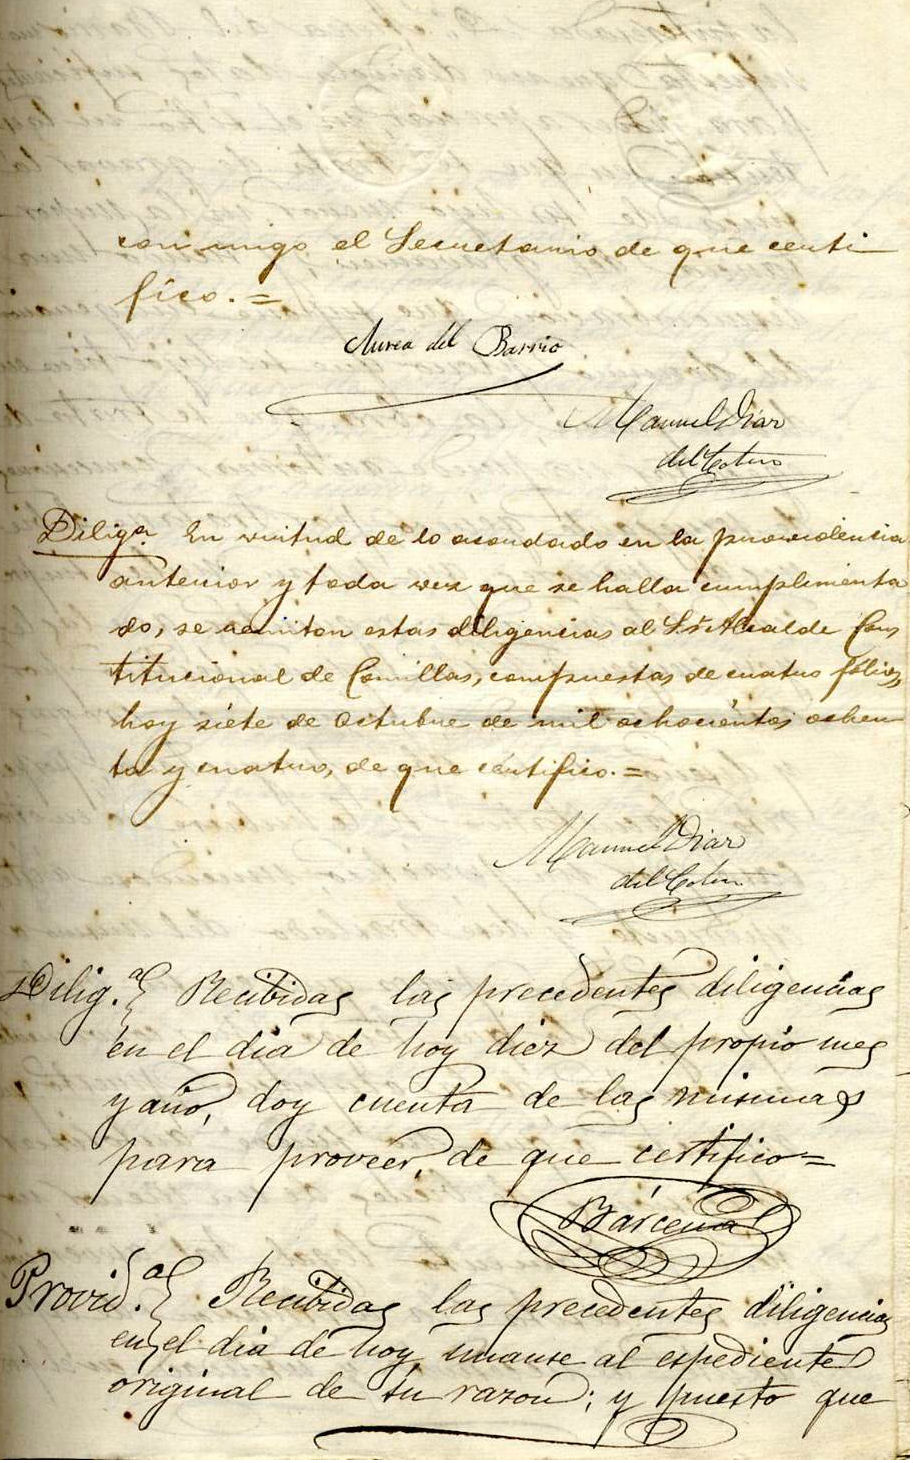 con migo el Secretario de que certi
fíco. =
Aurea del Barrio
Manuel Diaz
del
Dilig.ª En virtud de lo acordado en la providencia
anterior y toda vez que se halla cumplimenta
do, se remiton estas diligencias al Sr Alcalde Cons
titucional de Comillas, compuestas de cuatro fólios,
hoy siete de Octubre de mil ochociéntos ochen
ta y cuatro, de que cértifico. =
Manuel Diaz
del
Dilig.ª Recibidas las precedentes diligencias
en el dia de hoy diez del propio mes
y año, doy cuenta de las mismas
para proveer, de que certifico =
Bárcena
Provid.ª Recibidas las precedentes diligencias
en el dia de hoy, unanse al espediente
original de su razon; y puesto que